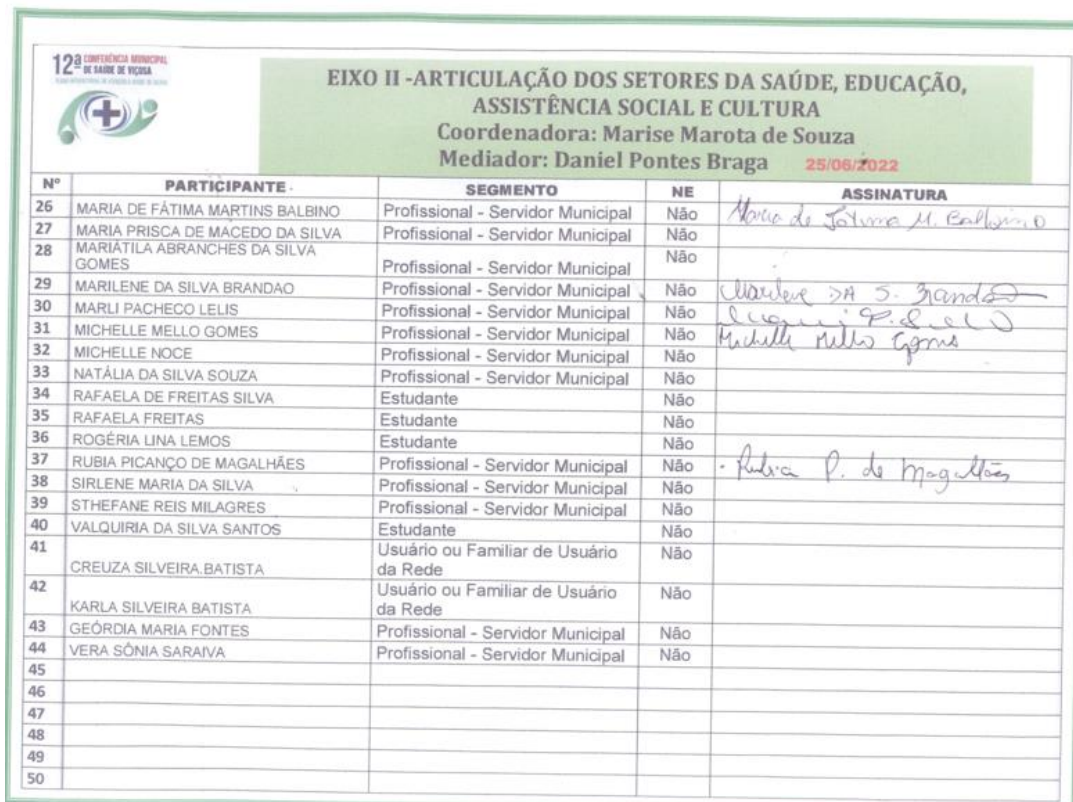 12ª CONFERÊNCIA MUNICIPAL
DE SAÚDE DE VIÇOSA
EIXO II -ARTICULAÇÃO DOS SETORES DA SAÚDE, EDUCAÇÃO,
ASSISTÊNCIA SOCIAL E CULTURA
Coordenadora: Marise Marota de Souza
Mediador: Daniel Pontes Braga 25/06/2022
Nº PARTICIPANTE SEGMENTO NE ASSINATURA
26 MARIA DE FÁTIMA MARTINS BALBINO Profissional - Servidor Municipal Não Maria de Fátima M. Balbino
27 MARIA PRISCA DE MACEDO DA SILVA Profissional - Servidor Municipal Não
28 MARIÁTILA ABRANCHES DA SILVA
GOMES Profissional - Servidor Municipal Não
29 MARILENE DA SILVA BRANDAO Profissional - Servidor Municipal Não Marilene DA S. Brandão
30 MARLI PACHECO LELIS Profissional - Servidor Municipal Não
31 MICHELLE MELLO GOMES Profissional - Servidor Municipal Não Michelle Mello Gomes
32 MICHELLE NOCE Profissional - Servidor Municipal Não
33 NATÁLIA DA SILVA SOUZA Profissional - Servidor Municipal Não
34 RAFAELA DE FREITAS SILVA Estudante Não
35 RAFAELA FREITAS Estudante Não
36 ROGÉRIA LINA LEMOS Estudante Não
37 RUBIA PICANÇO DE MAGALHÃES Profissional - Servidor Municipal Não Rubia P. de Magalhães
38 SIRLENE MARIA DA SILVA Profissional - Servidor Municipal Não
39 STHEFANE REIS MILAGRES Profissional - Servidor Municipal Não
40 VALQUIRIA DA SILVA SANTOS Estudante Não
41 CREUZA SILVEIRA BATISTA Usuário ou Familiar de Usuário Não
da Rede
42 KARLA SILVEIRA BATISTA Usuário ou Familiar de Usuário Não
da Rede
43 GEÓRDIA MARIA FONTES Profissional - Servidor Municipal Não
44 VERA SÔNIA SARAIVA Profissional - Servidor Municipal Não
45
46
47
48
49
50